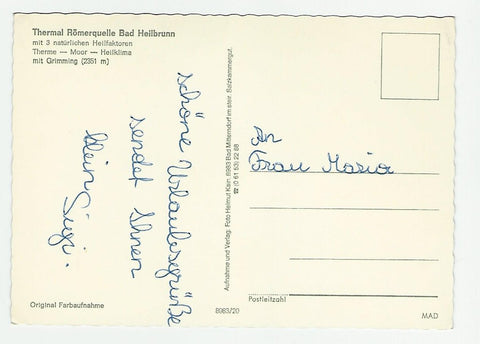 Thermal Römerquelle Bad Heilbrunn
mit 3 natürlichen Heilfaktoren
Therme — Moor — Heilklima
mit Grimming (2351 m)
schöne Urlaubsgrüße
sendet Ihnen
klein Sigi.
Original Farbaufnahme
Aufnahme und Verlag: Foto Helmut Klein, 8983 Bad Mitterndorf im steir. Salzkammergut.
☎ (0 61 53) 22 88
8983/20
An
Frau Maria
Postleitzahl
MAD